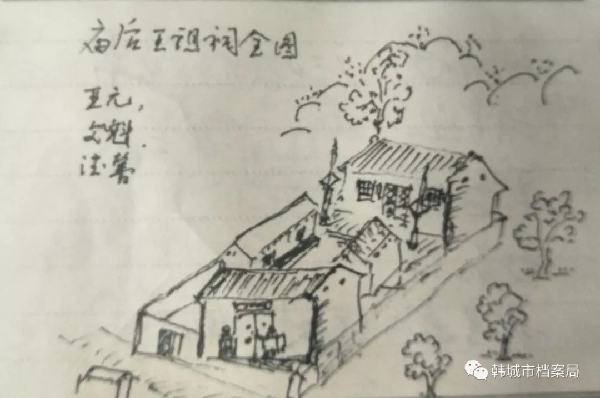 庙后王祖祠全图
亚元,
文魁
法善
韩城市档案局